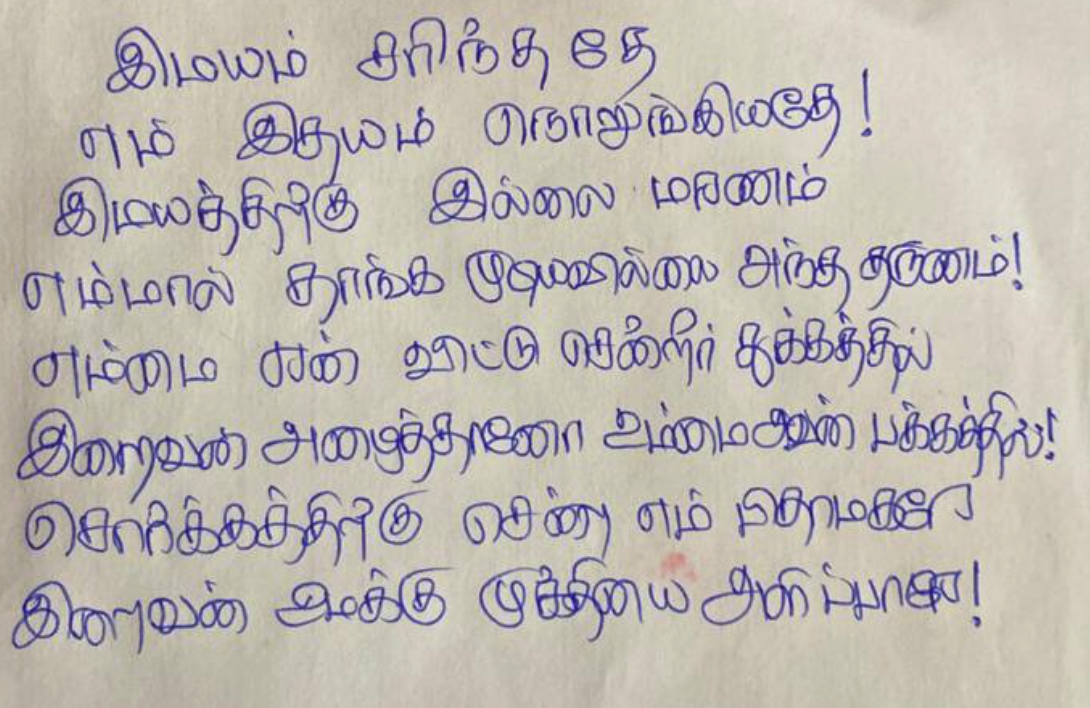 இமயம் சரிந்ததே
எம் இதயம் நொறுங்கியதே!
இமயத்திற்கு இல்லை மரணம்
எம்மால் தாங்க முடியவில்லை அந்த தருணம்!
எம்மை ஏன் விட்டு சென்றீர் துக்கத்தில்
இறைவன் அழைத்தானோ உம்மை அவன் பக்கத்தில்!
சொர்க்கத்திற்கு சென்ற எம்
இறைவன் உமக்கு முக்தியை அளிப்பானே!